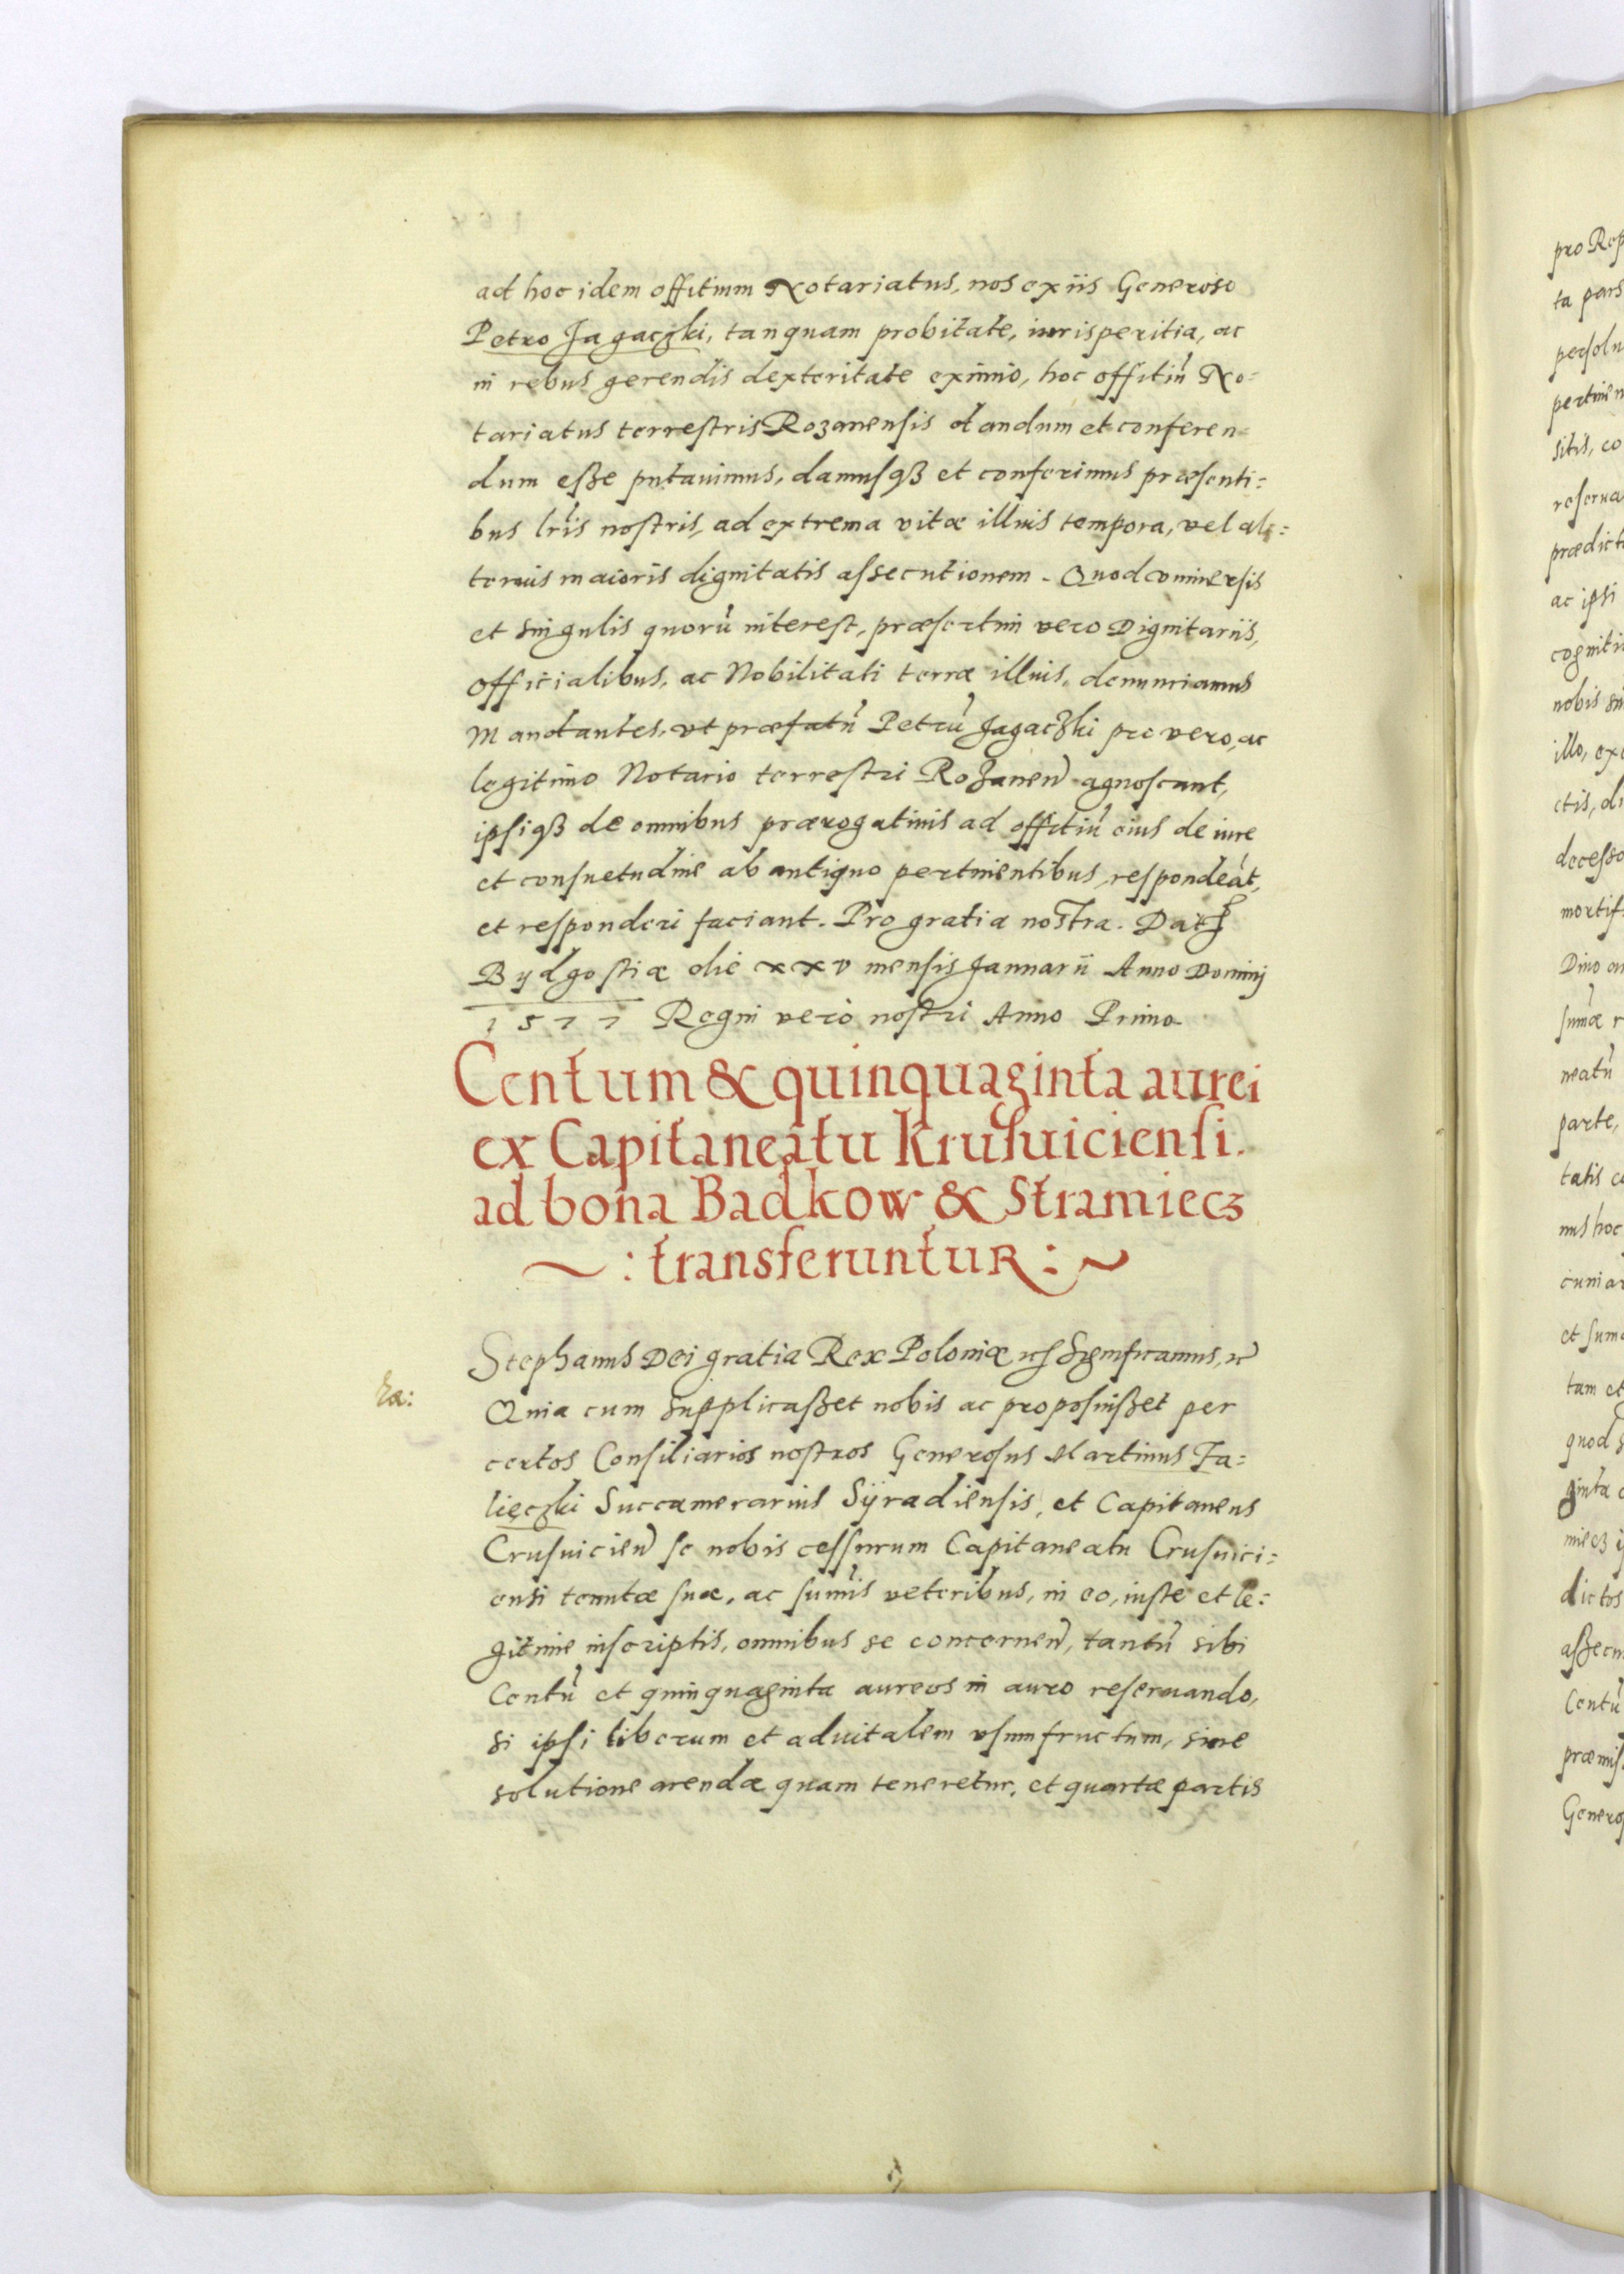 ad hoc idem offitium Notariatus, nos ex iis Generoso
Petro Jagaczki, tanquam probitate, iurisperitia, ac
in rebus gerendis dexteritate eximio, hoc offitiũ No=
tariatus terrestris Rozanensis dandum et conferen=
dum eße putauimus, damusqß et conferimus præsenti=
bus lr̃is nostris, ad extrema vitæ illius tempora, vel al=
terius maioris dignitatis assecutionem. Quod vniuersis
et singulis quorũ interest, præsertim vero Dignitariis,
officialibus, ac Nobilitati terræ illius, denunciamus
Mandantes, vt præfatũ Petrũ Jagaczki pro vero, ac
legitimo Notario terrestri Rozanen̄ agnoscant,
ipsiqß de omnibus prærogatiuis ad offitiũ eius de iure
et consuetudine ab antiquo pertinentibus, respondeãt,
et responderi faciant. Pro gratia nostra. Dat̃
Bydgostiæ die xxv mensis Januarii Anno Dominj
1577 Regni vero nostri Anno Primo
Centum & quinquaginta aurei
ex Capitaneatu Krusuiciensi.
ad bona Badkow & Stramiecz
~ : transferuntur : ~
Stephanus Dei gratia Rex Poloniæ etc Significamus, etc
Ra:
Quia cum supplicaßet nobis ac proposuißet per
certos Consiliarios nostros Generosus Martinus Fa=
lięczki Succamerarius Syradiensis, et Capitaneus
Crusuicien̄ se nobis cessurum Capitaneatu Crusuici=
ensi tenutæ suæ, ac sum̃is veteribus, in eo, iuste et le=
gitime inscriptis, omnibus se concernen̄, tantũ sibi
Centũ et quinquaginta aureos in auro reseruando,
si ipsi liberum et aduitalem vsumfructum, sine
solutione arendæ quam teneretur, et quartæ partis